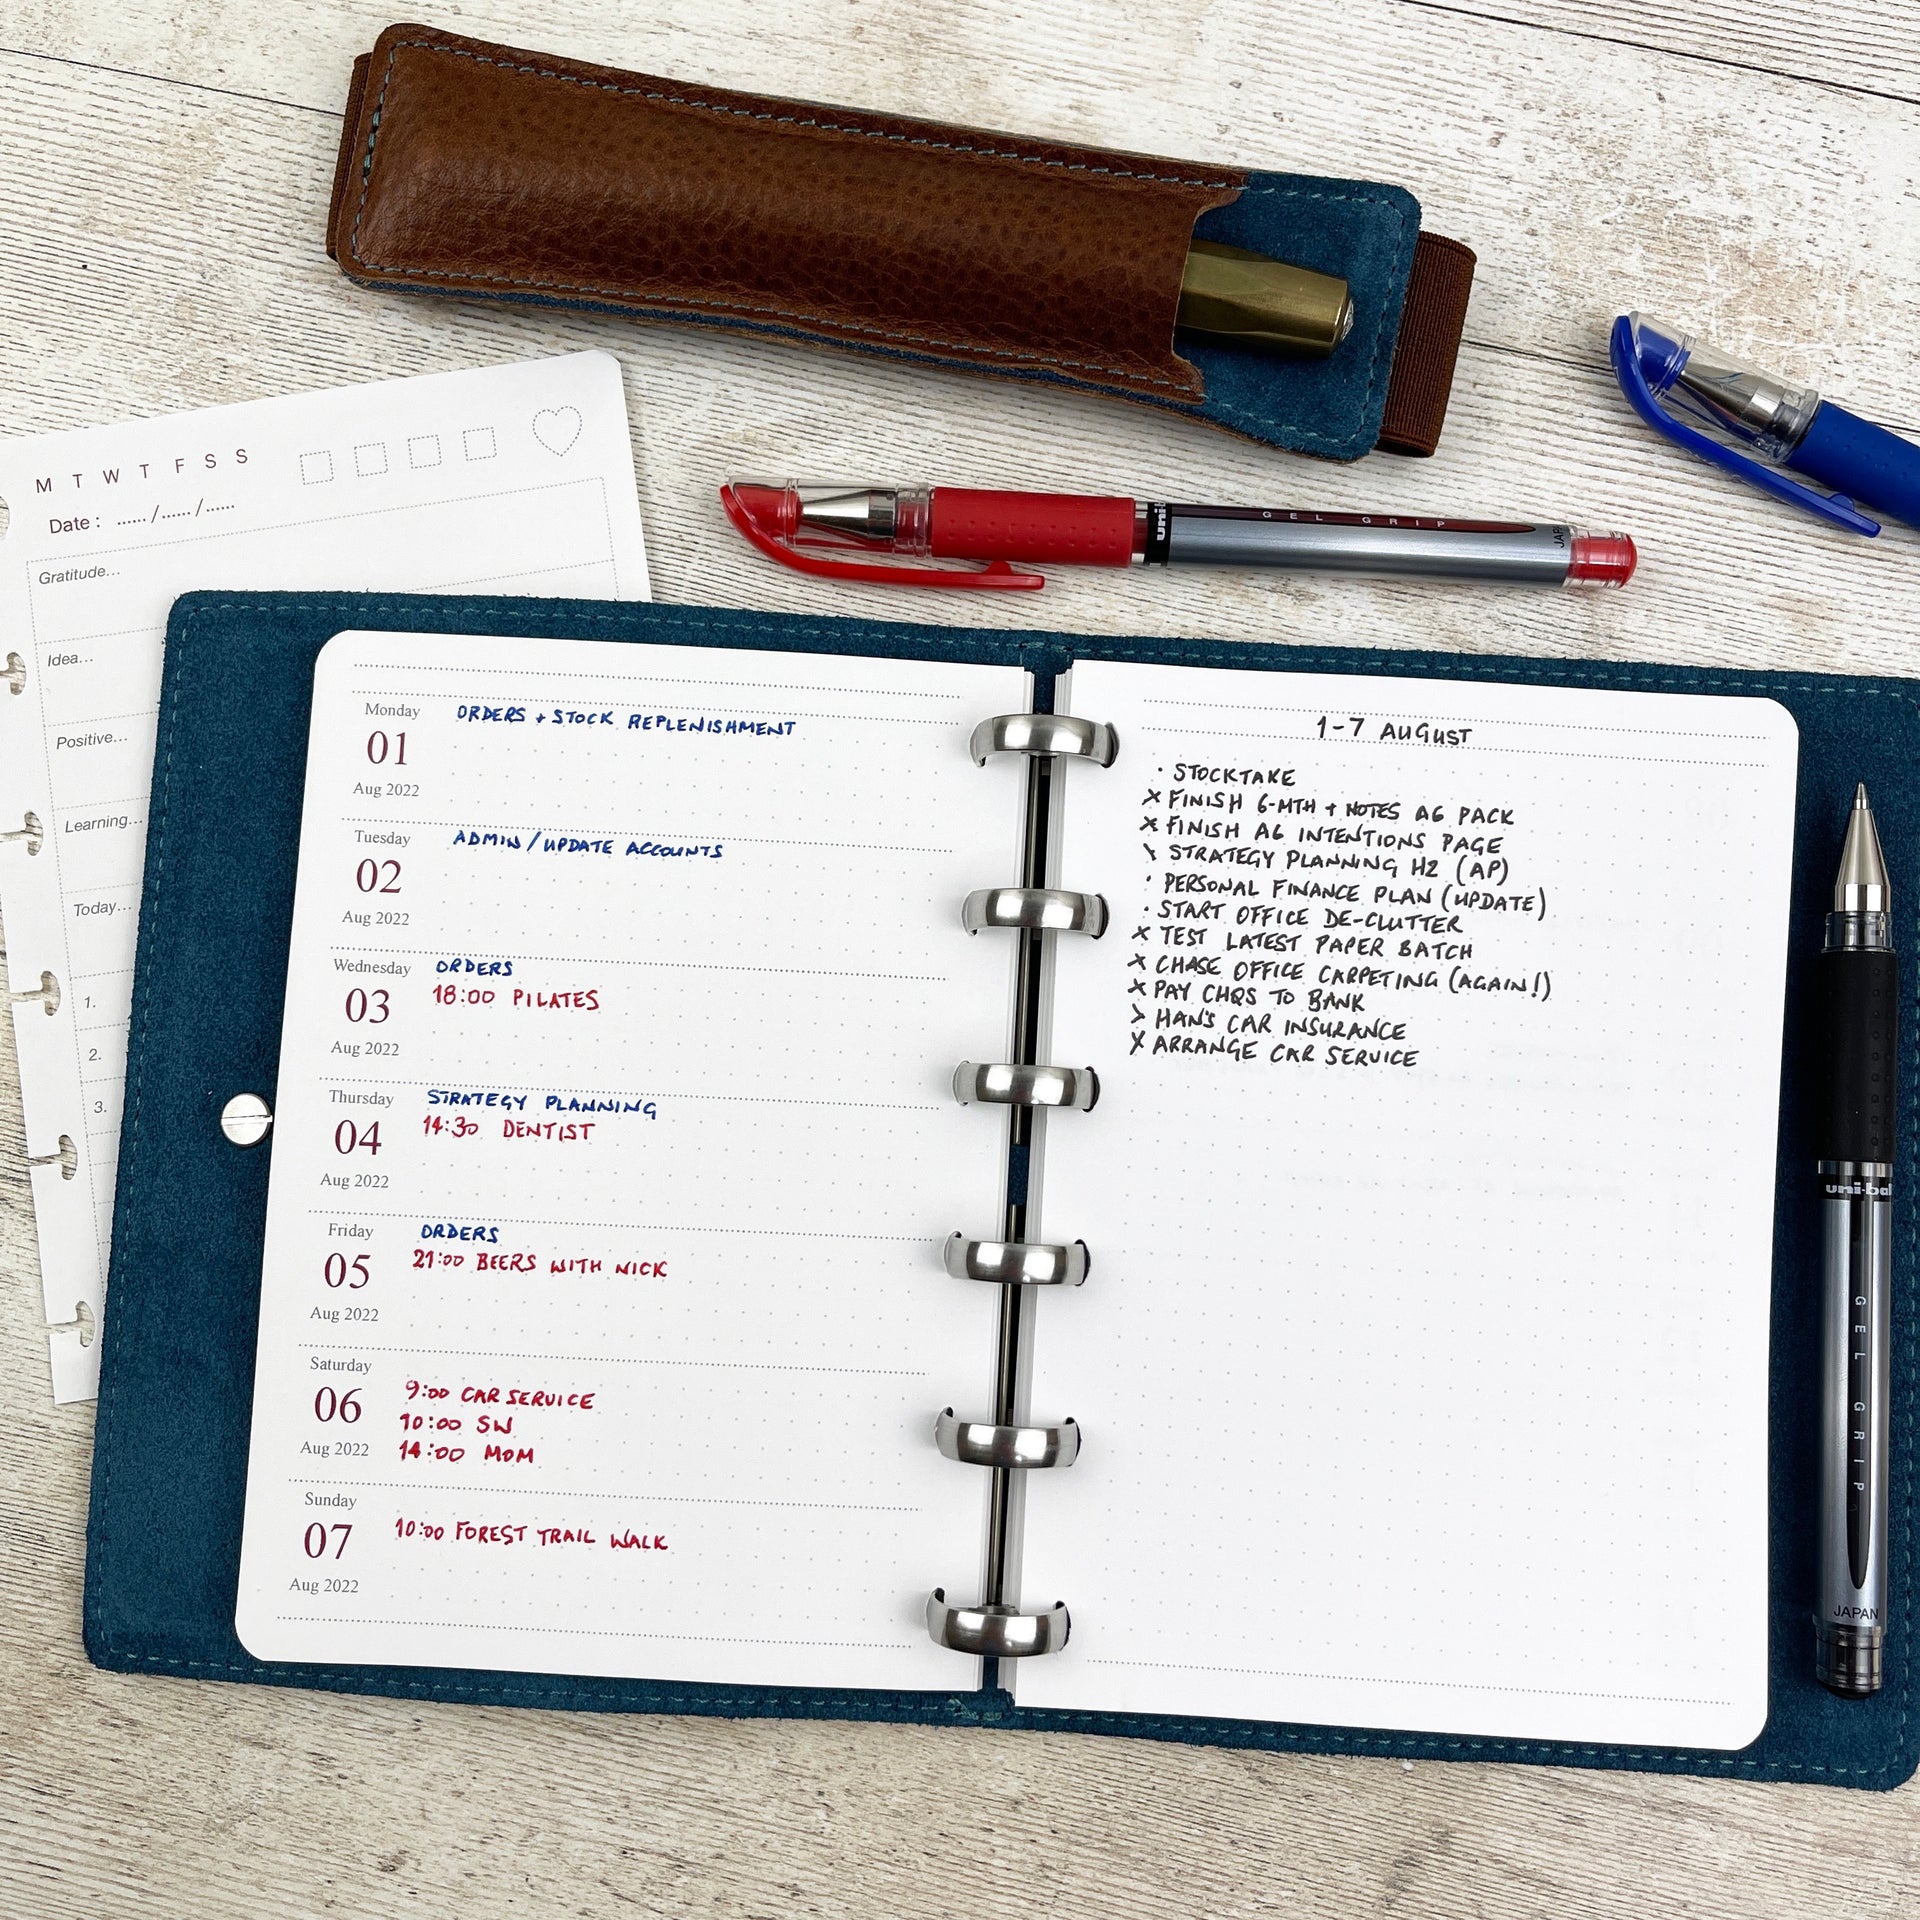 M T W T F S S
Date : ...... / ...... / ......
Gratitude...
Idea...
Positive...
Learning...
Today...
1.
2.
3.
uni
GEL GRIP
JAP
Monday
01
Aug 2022
ORDERS + STOCK REPLENISHMENT
Tuesday
02
Aug 2022
ADMIN / UPDATE ACCOUNTS
Wednesday
03
Aug 2022
ORDERS
18:00 PILATES
Thursday
04
Aug 2022
STRATEGY PLANNING
14:30 DENTIST
Friday
05
Aug 2022
ORDERS
21:00 BEERS WITH NICK
Saturday
06
Aug 2022
9:00 CAR SERVICE
10:00 SW
14:00 MOM
Sunday
07
Aug 2022
10:00 FOREST TRAIL WALK
1-7 AUGUST
· STOCKTAKE
X FINISH 6-MTH + NOTES A6 PACK
X FINISH A6 INTENTIONS PAGE
\ STRATEGY PLANNING H2 (AP)
· PERSONAL FINANCE PLAN (UPDATE)
· START OFFICE DE-CLUTTER
X TEST LATEST PAPER BATCH
X CHASE OFFICE CARPETING (AGAIN!)
X PAY CHQS TO BANK
> HAN'S CAR INSURANCE
X ARRANGE CAR SERVICE
uni-bal
GEL GRIP
JAPAN